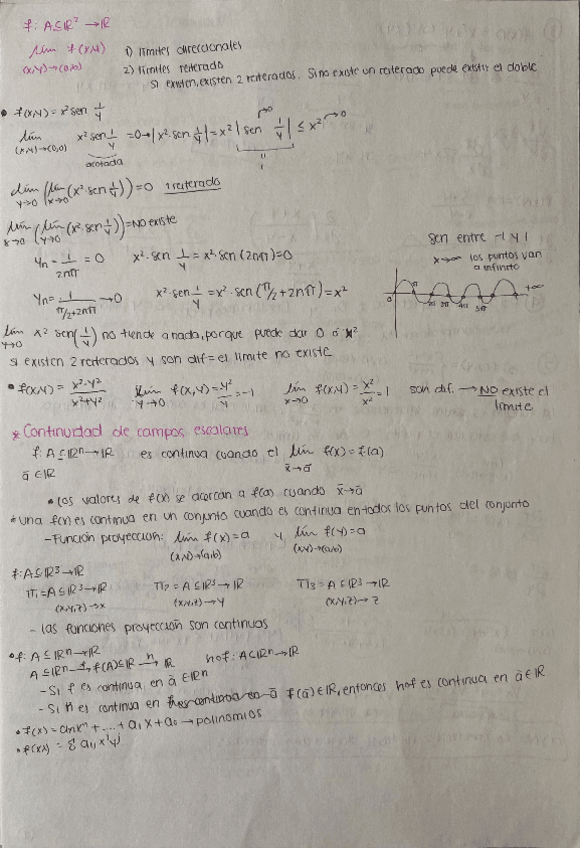 f: A⊆ℝ² → ℝ
lim f(x,y) 1) límites direccionales
(x,y)→(0,0) 2) límites reiterado
si existen, existen 2 reiterados. Si no existe un reiterado puede existir el doble
• f(x,y) = x² sen 1/y
lim (x,y)→(0,0) x² sen 1/y = 0 → |x² · sen 1/y| = x² |sen 1/y| ≤ x² → 0
acotada
lim y→0 (lim x→0 (x² · sen 1/y)) = 0 1 reiterado
lim x→0 (lim y→0 (x² · sen 1/y)) = NO existe
sen entre -1 y 1
x→∞ los puntos van a infinito
yn = 1/2nπ = 0 x² · sen 1/y = x² · sen (2nπ) = 0
yn = 1/(π/2+2nπ) → 0 x² · sen 1/y = x² · sen (π/2 + 2nπ) = x²
0 π 2π 3π 4π 5π +∞
lim y→0 x² sen(1/y) no tiende a nada, porque puede dar 0 ó x²
si existen 2 reiterados y son dif = el límite no existe
• f(x,y) = x²-y²/x²+y² lim y→0 f(x,y) = y²/y = -1 lim x→0 f(x,y) = x²/x² = 1 son dif. → NO existe el límite
* Continuidad de campos escalares
f: A⊆ℝⁿ→ℝ es continua cuando el lim x̄→ā f(x) = f(a)
ā ∈ ℝ
• Los valores de f(x) se acercan a f(a) cuando x̄→ā
* una f(x) es continua en un conjunto cuando es continua en todos los puntos del conjunto
- Función proyección: lim (x,y)→(a,b) f(x) = a y lim (x,y)→(a,b) f(y) = a
f: A⊆ℝ³→ℝ
π₁ = A⊆ℝ³→ℝ π₂ = A⊆ℝ³→ℝ π₃ = A⊆ℝ³→ℝ
(x,y,z)→x (x,y,z)→y (x,y,z)→z
- las funciones proyección son continuas
• f: A⊆ℝⁿ→ℝ
A⊆ℝⁿ →f f(A)⊆ℝ →h ℝ h∘f: A⊂ℝⁿ→ℝ
- Si f es continua en ā ∈ ℝⁿ
- Si h es continua en f(ā) ∈ ℝ, entonces h∘f es continua en ā ∈ ℝ
• f(x) = anxⁿ + ... + a₁x + a₀ → polinomios
• f(x,y) = Σ aij xⁱyʲ